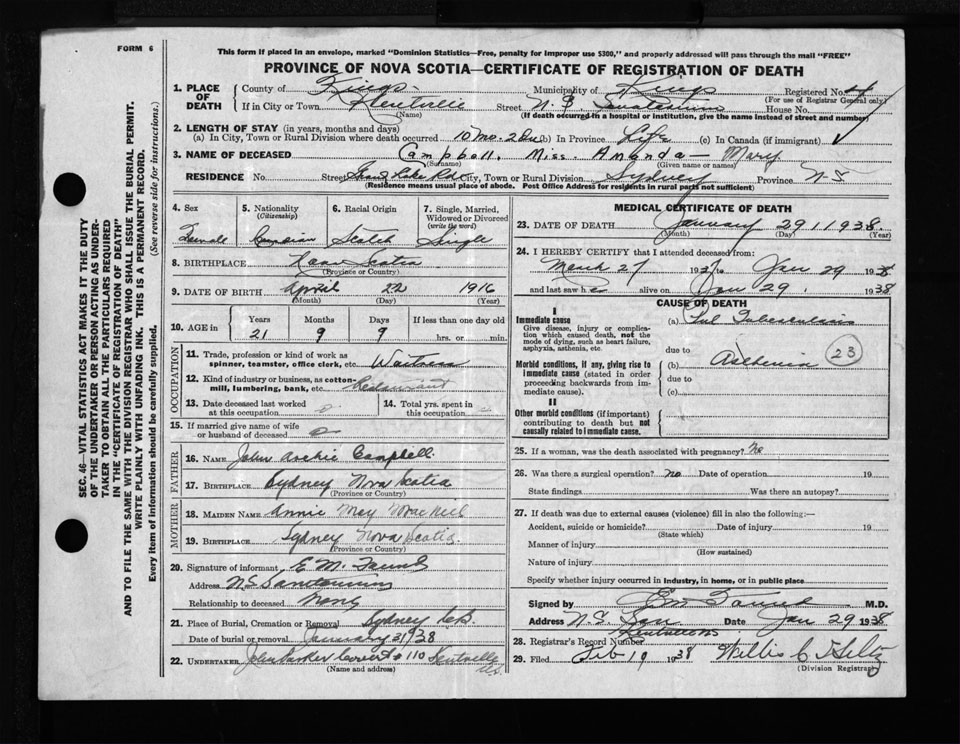 FORM 6
This form if placed in an envelope, marked "Dominion Statistics—Free, penalty for improper use $300," and properly addressed will pass through the mail "FREE"
PROVINCE OF NOVA SCOTIA—CERTIFICATE OF REGISTRATION OF DEATH
1. PLACE OF DEATH County of Kings Municipality of Kings Registered No. 4
(For use of Registrar General only)
If in City or Town Kentville Street N.S. Sanatorium House No.
(Name) (If death occurred in a hospital or institution, give the name instead of street and number)
2. LENGTH OF STAY (in years, months and days)
(a) In City, Town or Rural Division where death occurred 10 mo. 2 (b) In Province Life (c) In Canada (if immigrant)
3. NAME OF DECEASED Campbell, Miss. Amanda Mary
(Surname) (Given name or names)
RESIDENCE No. Street Lake Rd City, Town or Rural Division Sydney Province N.S
(Residence means usual place of abode. Post Office Address for residents in rural parts not sufficient)
4. Sex Female
5. Nationality (Citizenship) Canadian
6. Racial Origin Scotch
7. Single, Married, Widowed or Divorced (write the word) Single
8. BIRTHPLACE Nova Scotia
(Province or Country)
9. DATE OF BIRTH April 22 1916
(Month) (Day) (Year)
10. AGE in Years 21 Months 9 Days 9 If less than one day old hrs. or min.
OCCUPATION
11. Trade, profession or kind of work as spinner, teamster, office clerk, etc. Waitress
12. Kind of industry or business, as cotton-mill, lumbering, bank, etc. Restaurant
13. Date deceased last worked at this occupation
14. Total yrs. spent in this occupation
15. If married give name of wife or husband of deceased
FATHER
16. NAME John Archie Campbell
17. BIRTHPLACE Sydney Nova Scotia
(Province or Country)
MOTHER
18. MAIDEN NAME Annie May MacNeil
19. BIRTHPLACE Sydney Nova Scotia
(Province or Country)
20. Signature of informant E. M.
Address N.S. Sanatorium
Relationship to deceased None
21. Place of Burial, Cremation or Removal Sydney C.B.
Date of burial or removal January 31 1938
22. UNDERTAKER John Parker 110 Kentville N.S.
(Name and address)
MEDICAL CERTIFICATE OF DEATH
23. DATE OF DEATH January 29 1938
(Month) (Day) (Year)
24. I HEREBY CERTIFY that I attended deceased from:
March 27 1937 to Jan 29 1938
and last saw her alive on Jan 29. 1938
CAUSE OF DEATH
I
Immediate cause (a) Pul Tuberculosis
Give disease, injury or complication which caused death, not the mode of dying, such as heart failure, asphyxia, asthenia, etc.
due to
Morbid conditions, if any, giving rise to immediate cause (stated in order proceeding backwards from immediate cause).
(b) Asthenia 23
due to
(c)
II
Other morbid conditions (if important) contributing to death but not causally related to immediate cause.
25. If a woman, was the death associated with pregnancy? No
26. Was there a surgical operation? no Date of operation 19
State findings Was there an autopsy?
27. If death was due to external causes (violence) fill in also the following:—
Accident, suicide or homicide? Date of injury 19
(State which)
Manner of injury
(How sustained)
Nature of injury
Specify whether injury occurred in industry, in home, or in public place
Signed by M.D.
Address N.S. San Kentville Date Jan 29 1938
28. Registrar's Record Number
29. Filed Feb 19 1938 Willis C Hiltz
(Division Registrar)
SEC. 46—VITAL STATISTICS ACT MAKES IT THE DUTY
OF THE UNDERTAKER OR PERSON ACTING AS UNDER-
TAKER TO OBTAIN ALL THE PARTICULARS REQUIRED
IN THE "CERTIFICATE OF REGISTRATION OF DEATH"
AND TO FILE THE SAME WITH THE DIVISION REGISTRAR WHO SHALL ISSUE THE BURIAL PERMIT.
WRITE PLAINLY WITH UNFADING INK. THIS IS A PERMANENT RECORD.
Every item of information should be carefully supplied. (See reverse side for instructions.)